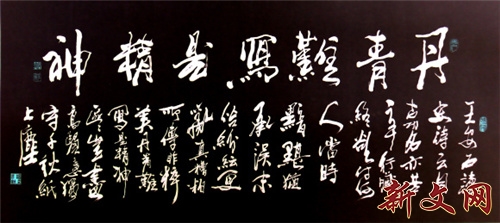 丹青難寫是精神
王安石讀
史诗云自
古功名亦苦
辛行藏
终欲付何
人當時
黮闇猶
承误末
俗紛紜更
亂真糟粕
所傳非粹
美丹青難
寫是精神
區區豈盡
高賢意獨
守千秋紙
上塵
新文网